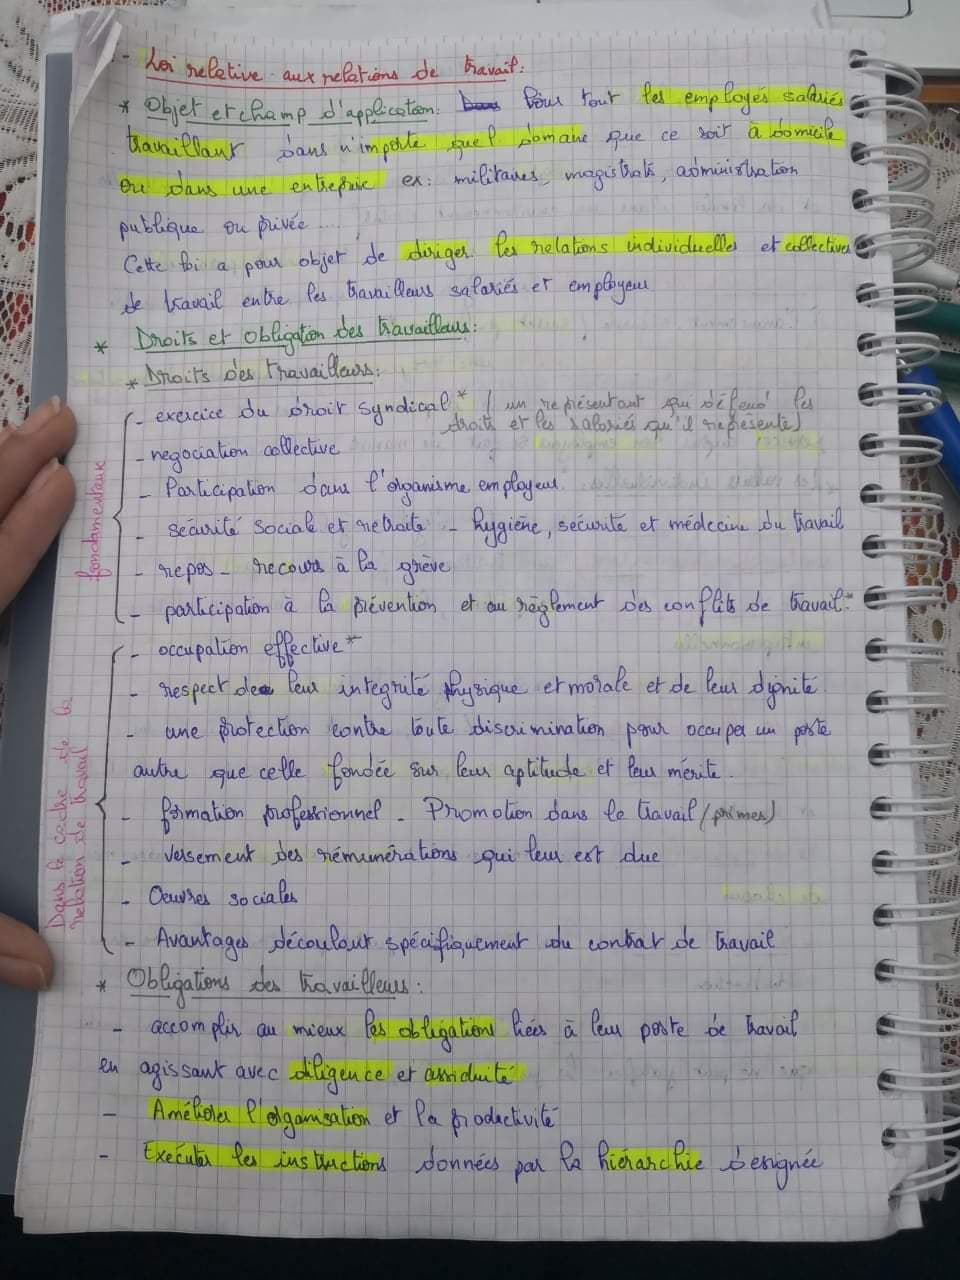 - Loi relative aux relations de travail:
* Objet et champ d'application: Pour tout les employés salariés
travaillant dans n'importe quel domaine que ce soit à domicile
ou dans une entreprise ex: militaires, magistrats, administration
publique ou privée ....,
Cette loi a pour objet de diriger les relations individuelles et collectives
de travail entre les travailleurs salariés et employeur
* Droits et obligation des travailleurs:
* Droits des travailleurs:
fondamentaux
- exercice du droit syndical * / un représentant qui défend les
droits et les salariés qu'il représente)
- negociation collective
- Participation dans l'organisme employeur
- sécurité sociale et retraite - hygiène, sécurité et médecine du travail
- repos - recours à la grève
- participation à la prévention et au règlement des conflits de travail *
Dans le cadre de la
relation de travail
- occupation effective *
- respect de leur integrité physique et morale et de leur dignité
- une protection contre toute discrimination pour occuper un poste
autre que celle fondée sur leur aptitude et leur mérite.
- formation professionnel - Promotion dans le travail (primes)
- versement des rémunérations qui leur est due
- Oeuvres sociales
- Avantages découlant spécifiquement du contrat de travail
* Obligations des travailleurs:
- accomplir au mieux les obligations liées à leur poste de travail
en agissant avec diligence et assiduité
- Améliorer l'organisation et la productivité
- Exécuter les instructions données par la hiérarchie designée